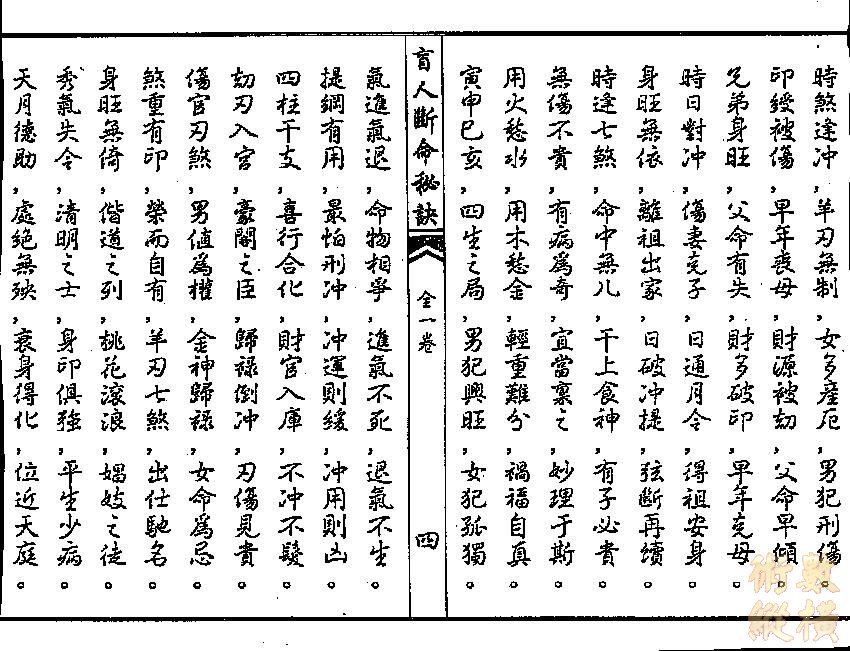 時煞逢冲，羊刃無制，女多產厄，男犯刑傷。
印綬被傷，早年喪母，財源被刼，父命早傾。
兄弟身旺，父命有失，財多破印，早年克母。
時日對冲，傷妻克子，日通月令，得祖安身。
身旺無依，離祖出家，日破冲提，弦斷再續。
時逢七煞，命中無儿，干上食神，有子必貴。
無傷不貴，有病為奇，宜當稟之，妙理于斯。
用火愁水，用木愁金，輕重難分，禍福自真。
寅申巳亥，四生之局，男犯興旺，女犯孤獨。
盲人斷命秘訣
全一卷
四
氣進氣退，命物相爭，進氣不死，退氣不生。
提綱有用，最怕刑冲，冲運則緩，冲用則凶。
四柱干支，喜行合化，財官入庫，不冲不發。
刼刃入宮，豪閣之臣，歸祿倒冲，刃傷見貴。
傷官刃煞，男值為權，金神歸祿，女命為忌。
煞重有印，榮而自有，羊刃七煞，出仕馳名。
身旺無倚，偕道之列，桃花滾浪，娼妓之徒。
秀氣失令，清明之士，身印俱強，平生少病。
天月德助，處絕無殃，衰身得化，位近天庭。
數橫
術縱